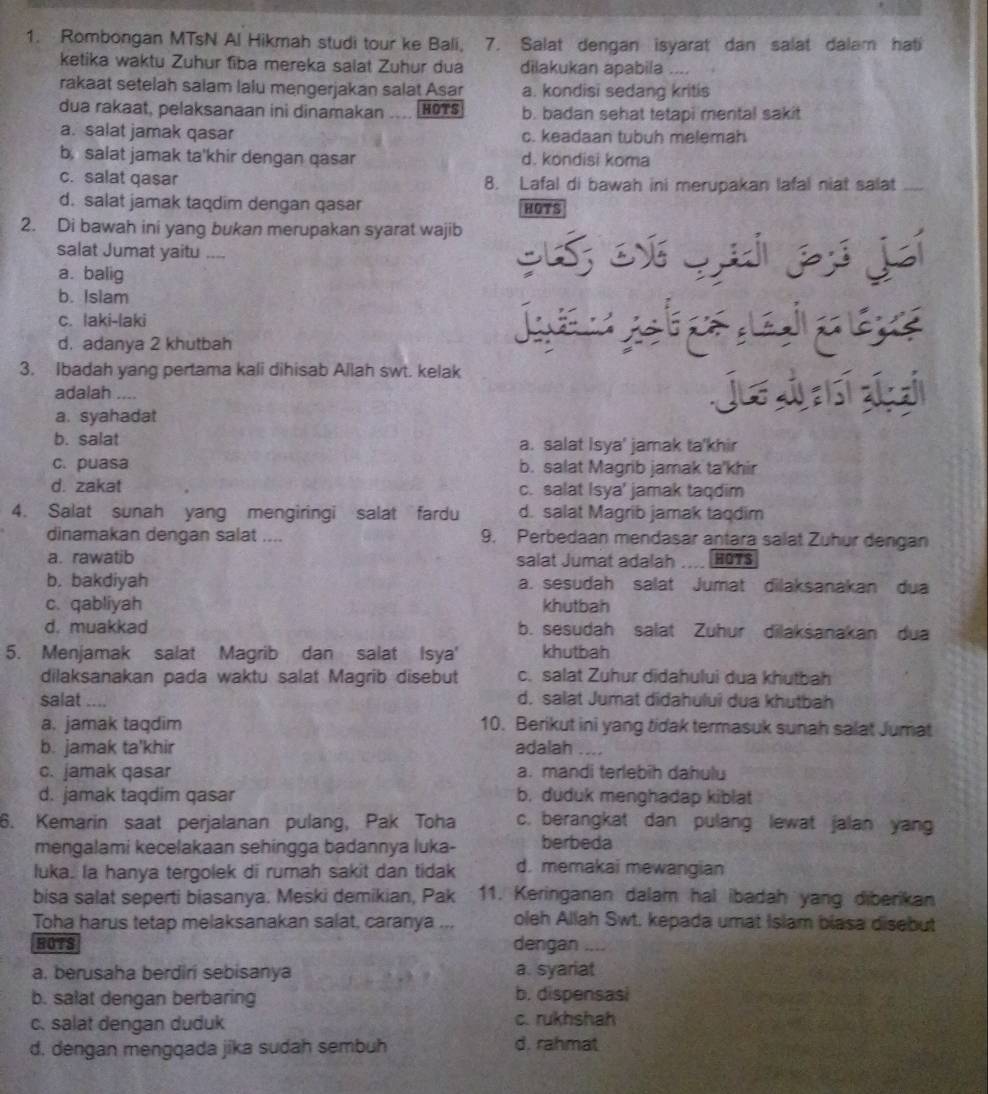 1. Rombongan MTsN Al Hikmah studi tour ke Bali,
ketika waktu Zuhur tiba mereka salat Zuhur dua
rakaat setelah salam lalu mengerjakan salat Asar
dua rakaat, pelaksanaan ini dinamakan .... HOTS
a. salat jamak qasar
b. salat jamak ta'khir dengan qasar
c. salat qasar
d. salat jamak taqdim dengan qasar
2. Di bawah ini yang bukan merupakan syarat wajib
salat Jumat yaitu ....
a. balig
b. Islam
c. laki-laki
d. adanya 2 khutbah
3. Ibadah yang pertama kali dihisab Allah swt. kelak
adalah ....
a. syahadat
b. salat
c. puasa
d. zakat
4. Salat sunah yang mengiringi salat fardu
dinamakan dengan salat ....
a. rawatib
b. bakdiyah
c. qabliyah
d. muakkad
5. Menjamak salat Magrib dan salat Isya'
dilaksanakan pada waktu salat Magrib disebut
salat ....
a. jamak taqdim
b. jamak ta'khir
c. jamak qasar
d. jamak taqdim qasar
6. Kemarin saat perjalanan pulang, Pak Toha
mengalami kecelakaan sehingga badannya luka-
luka. Ia hanya tergolek di rumah sakit dan tidak
bisa salat seperti biasanya. Meski demikian, Pak
Toha harus tetap melaksanakan salat, caranya ...
HOTS
a. berusaha berdiri sebisanya
b. salat dengan berbaring
c. salat dengan duduk
d. dengan mengqada jika sudah sembuh
7. Salat dengan isyarat dan salat dalam hati
dilakukan apabila ....
a. kondisi sedang kritis
b. badan sehat tetapi mental sakit
c. keadaan tubuh melemah
d. kondisi koma
8. Lafal di bawah ini merupakan lafal niat salat ....
HOTS
أُصَلِّي فَرْضَ الْمَغْرِبِ ثَلَاثَ رَكَعَاتٍ
مَجْمُوْعًا مَعَ الْعِشَاءِ جَمْعَ تَأْخِيْرٍ مُسْتَقْبِلَ
الْقِبْلَةِ أَدَاءً لِلهِ تَعَالَى.
a. salat Isya' jamak ta'khir
b. salat Magrib jamak ta'khir
c. salat Isya' jamak taqdim
d. salat Magrib jamak taqdim
9. Perbedaan mendasar antara salat Zuhur dengan
salat Jumat adalah .... HOTS
a. sesudah salat Jumat dilaksanakan dua
khutbah
b. sesudah salat Zuhur dilaksanakan dua
khutbah
c. salat Zuhur didahului dua khutbah
d. salat Jumat didahului dua khutbah
10. Berikut ini yang tidak termasuk sunah salat Jumat
adalah ....
a. mandi terlebih dahulu
b. duduk menghadap kiblat
c. berangkat dan pulang lewat jalan yang
berbeda
d. memakai mewangian
11. Keringanan dalam hal ibadah yang diberikan
oleh Allah Swt. kepada umat Islam biasa disebut
dengan ....
a. syariat
b. dispensasi
c. rukhshah
d. rahmat